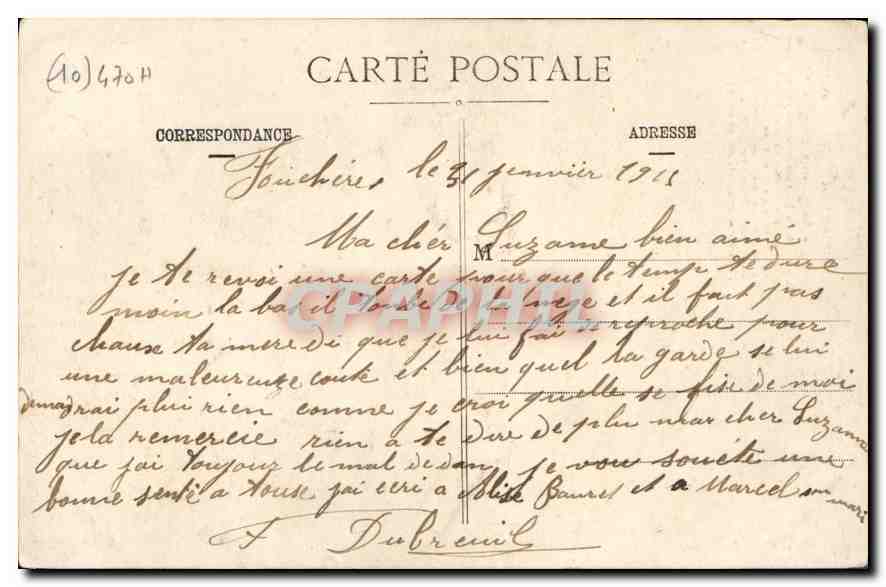 (10) 470H
CARTE POSTALE
CORRESPONDANCE
ADRESSE
Fouchères le 31 janvier 1911
M
Ma chér Suzanne bien aimé
je te revoi une carte pour que le temp te dure
moin la bas il tonbe de la nege et il fait pas
chaux ta mere di que je lui fai un reproche pour
une maleureuze couté et bien quel la garde se lui
demandrai plui rien comme je croi quelle se fise de moi
je la remercie rien a te dire de plu mar cher Suzanne
que jai toujour le mal de dan je vou souéte une
bonne senté a touse jai ecri a Alise Bauret et a Marcel son mari
F Dubreuil
CPAPHIL